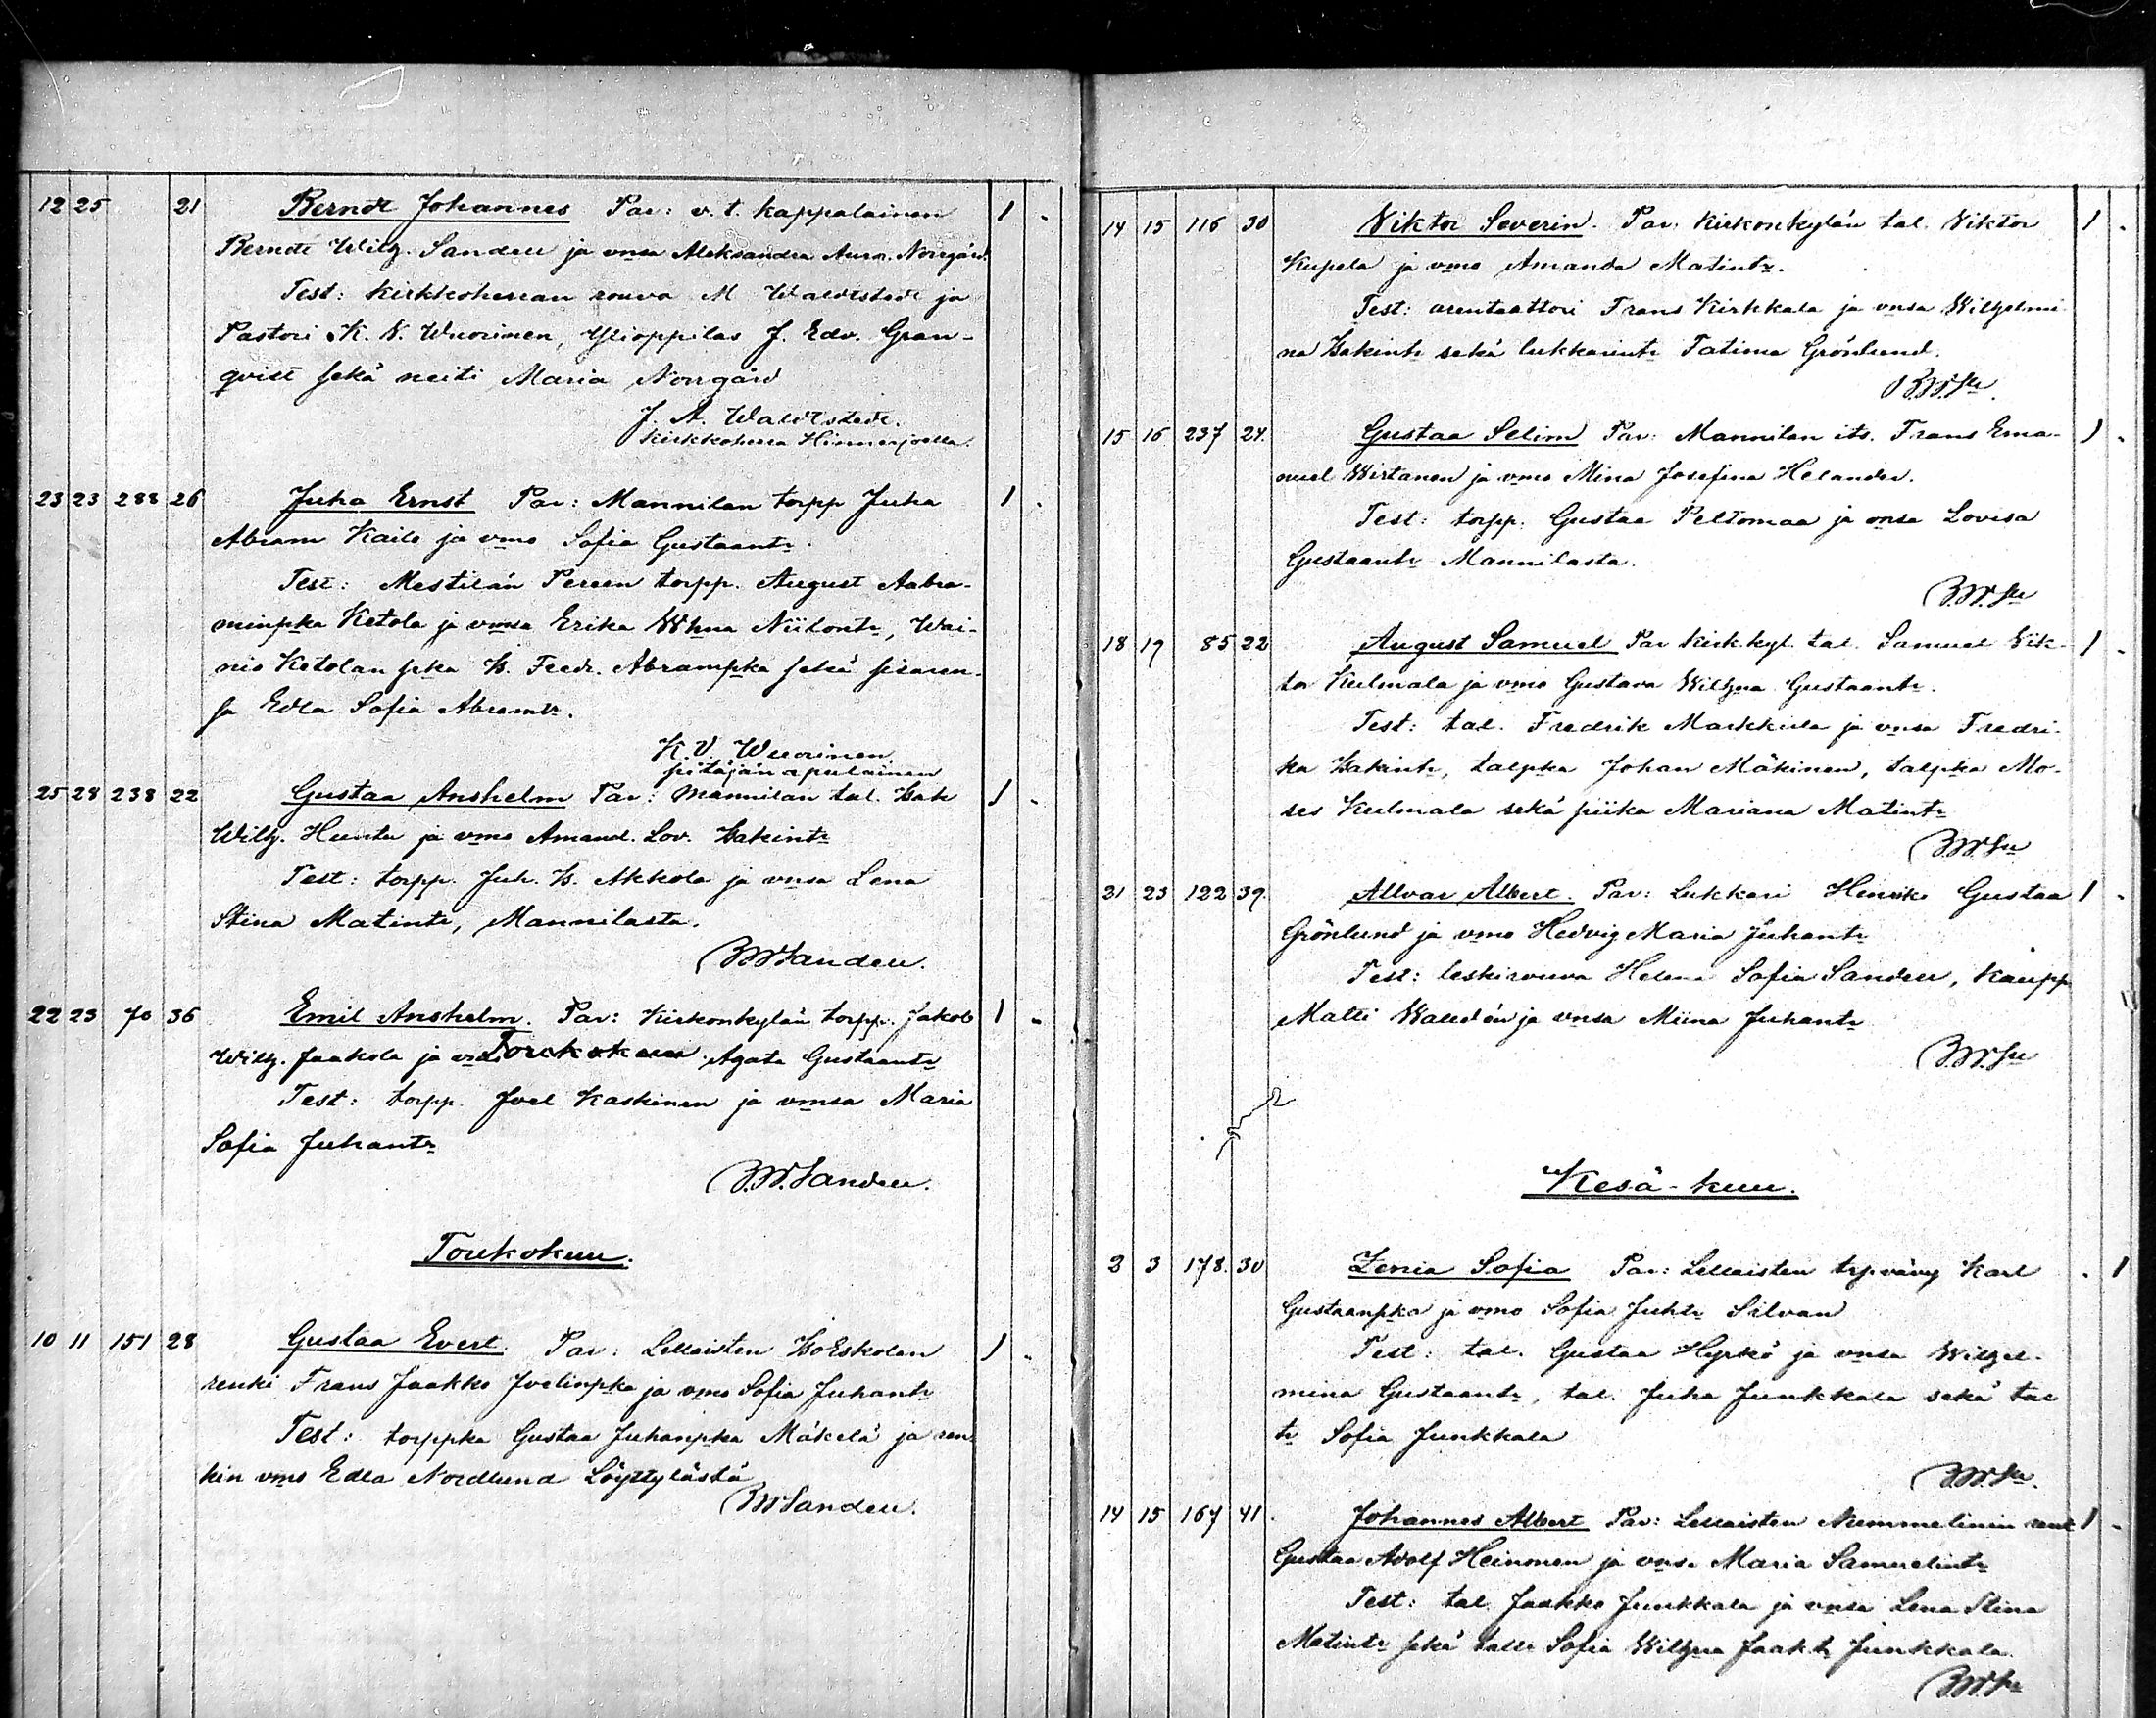 12 25 21 Berndt Johannes Par: v. t. kappalainen 1 -
Berndt Wilh. Sandell ja vmsa Aleksandra Auror. Norrgård.
Test: Kirkkoherran rouva M Waldstedt ja
Pastori K. V. Wuorinen, Ylioppilas J. Edv. Gran-
qvist sekä neiti Maria Norrgård
J. A. Waldstedt.
Kirkkoherra Hinnerjoella.
23 23 288 26 Juha Ernst Par: Mannilan torpp Juha 1 -
Abram Kailo ja vmo Sofia Gustaantr.
Test: Mestilän Pereen torpp. August Aabra-
minpka Ketola ja vmsa Erika Whna Niilontr, Wai-
nio Ketolan pka Is. Fredr. Abrampka sekä sisaren-
sa Edla Sofia Abramtr.
K. V. Wuorinen
pitäjän apulainen
25 28 238 22 Gustaa Anshelm Par: Mannilan tal. Isak 1 -
Wilh. Huntu ja vmo Amand. Lov. Isakintr
Test: torpp. Juh. Is. Akkola ja vmsa Lena
Stina Matintr, Mannilasta.
BWSandell.
22 23 70 36 Emil Anshelm. Par: Kirkonkylän torpp. Jakob 1 -
Wilh. Jaakola ja Toukokuu Agata Gustaantr
Test: torpp. Joel Kaskinen ja vmsa Maria
Sofia Juhantr
B.W.Sandell.
Toukokuu.
10 11 151 28 Gustaa Evert. Par: Lellaisten IsoEskolan 1 -
renki Frans Jaakko Joelinpka ja vmo Sofia Juhantr
Test: torppka Gustaa Juhanpka Mäkelä ja ren-
kin vmo Edla Nordlund Löyttylästä
BWSandell.
14 15 116 30 Viktor Severin. Par: Kirkonkylän tal. Viktor 1 -
Kupela ja vmo Amanda Matintr.
Test: arentaattori Frans Kirkkala ja vmsa Wilhelmi-
na Isakintr sekä lukkarintr Fatima Grönlund.
B.W.Sll.
15 16 237 24. Gustaa Selim Par: Mannilan its. Frans Ema- 1 -
nuel Wirtanen ja vmo Mina Josefina Helander.
Test: torpp. Gustaa Peltomaa ja vmsa Lovisa
Gustaantr Mannilasta.
B.W.Sll
18 19 85 22 August Samuel Par Kirk.kyl. tal. Samuel Vik- 1 -
tor Kulmala ja vmo Gustava Wilhna Gustaantr.
Test: tal. Fredrik Markkula ja vmsa Fredri-
ka Isakintr, talpka Johan Mäkinen, talpka Mo-
ses Kulmala sekä piika Mariana Matintr
B.W.Sll
21 23 122 39. Allvar Albert. Par: Lukkari Henrik Gustaa 1 -
Grönlund ja vmo Hedvig Maria Juhantr
Test: leskirouva Helena Sofia Sandell, Kaupp
Matti Walldén ja vmsa Miina Juhantr
B.W.Sll
Kesä-kuu.
2 3 178. 30 Zenia Sofia Par: Lellaisten trpvävy Karl - 1
Gustaanpka ja vmo Sofia Juhtr Silvan
Test: tal. Gustaa Hyrkö ja vmsa Wilhel-
mina Gustaantr, tal. Juha Junkkala sekä tal
tr Sofia Junkkala
B.W.Sll.
14 15 167 41. Johannes Albert Par: Lellaisten Nummelinin renk 1 -
Gustaa Adolf Heinonen ja vmsa Maria Samuelintr
Test: tal. Jaakko Junkkala ja vmsa Lena Stina
Matintr sekä taltr Sofia Wilhna Jaaktr Junkkala.
B.W.Sll